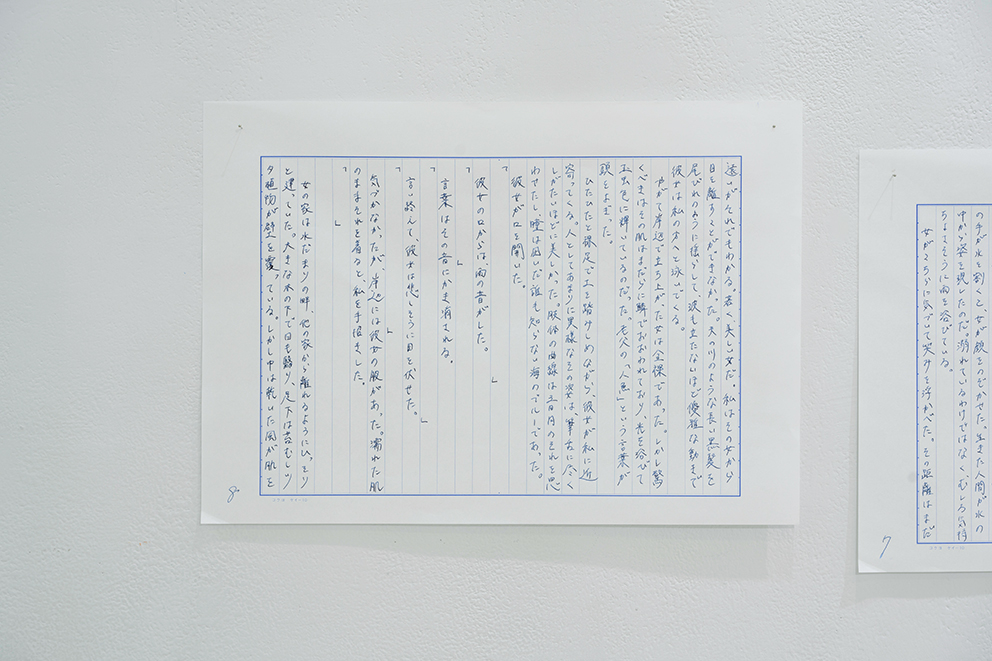 の手が水を割くと、女が顔をのぞかせた。生きた人間が水の
中から姿を現したのだ。溺れているわけではなく、むしろ気持
ちよさそうに雨を浴びている。
女がこちらに気づいて笑みを浮かべた。その距離はまだ
7
遠いがそれでもわかる。若く美しい女だ。私はその女から
目を離すことができなかった。天の川のような長い黒髪を
尾びれのように揺らして、波も立たないほど優雅な動きで
彼女は私の方へと泳いでくる。
やがて岸辺で立ち上がった女は全裸であった。しかし驚
くべきはその肌はまだらに鱗でおおわれており、光を浴びて
玉虫色に輝いているのだった。老父の「人魚」という言葉が
頭をよぎった。
ひたひたと裸足で土を踏みしめながら、彼女が私に近
寄ってくる。人としてあまりに異様なその姿は、筆舌に尽く
しがたいほどに美しかった。肢体の曲線は三日月のそれを思
わせたし瞳は凪いだ誰も知らない海のブルーであった。
彼女が口を開いた。
「　」
彼女の口からは、雨の音がした。
「　」
言葉はその音にかき消される。
「　」
言い終えて、彼女は悲しそうに目を伏せた。
「　」
気づかなかったが、岸辺には彼女の服があった。濡れた肌
のままそれを着ると、私を手招きした。
「　」
女の家は水だまりの畔、他の家から離れるようにひっそり
と建っていた。大きな木の下で日も翳り、足下は苔むしツ
タ植物が壁を覆っている。しかし中は乾いた風が肌を
8